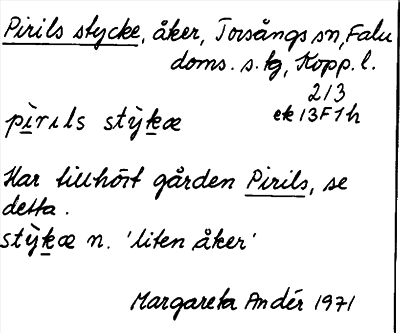 Pirils stycke, åker, Torsångs sn, Falu
doms. s. tg, Kopp. l.
213
pìrɩls stỳkæ ek 13F1h
Har tillhört gården Pirils, se
detta.
stỳkæ n. 'liten åker'
Margareta Andér 1971